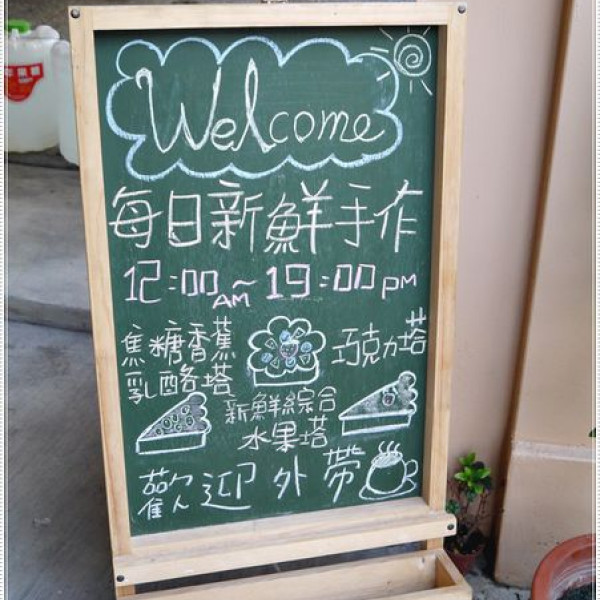 Welcome
每日新鮮手作
12:00AM~19:00PM
焦糖香蕉
乳酪塔
巧克力塔
新鮮綜合
水果塔
歡迎外帶